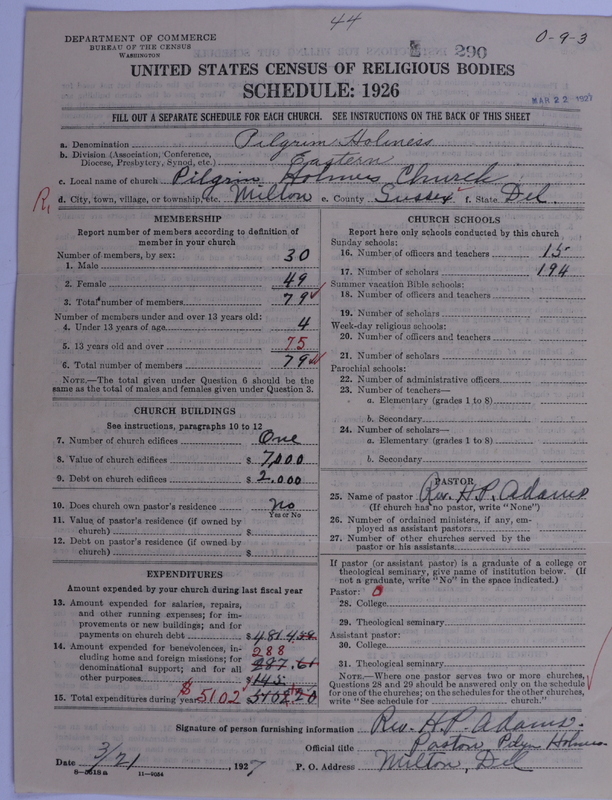 44
DEPARTMENT OF COMMERCE
BUREAU OF THE CENSUS
WASHINGTON
290
0-9-3
UNITED STATES CENSUS OF RELIGIOUS BODIES
SCHEDULE: 1926
MAR 22 1927
FILL OUT A SEPARATE SCHEDULE FOR EACH CHURCH. SEE INSTRUCTIONS ON THE BACK OF THIS SHEET
a. Denomination Pilgrim Holiness
b. Division (Association, Conference, Diocese, Presbytery, Synod, etc.) Eastern
c. Local name of church Pilgrim Holnes Church
R, d. City, town, village, or township, etc. Milton e. County Sussex f. State Del.
MEMBERSHIP
Report number of members according to definition of
member in your church
Number of members, by sex:
1. Male 30
2. Female 49
3. Total number of members 79
Number of members under and over 13 years old:
4. Under 13 years of age 4
5. 13 years old and over 75
6. Total number of members 79
NOTE.—The total given under Question 6 should be
same as the total of males and females given under Question 3.
CHURCH BUILDINGS
See instructions, paragraphs 10 to 12
7. Number of church edifices One
8. Value of church edifices $ 7,000
9. Debt on church edifices $ 2,000
10. Does church own pastor's residence No
Yes or No
11. Value of pastor's residence (if owned by
church) $
12. Debt on pastor's residence (if owned by
church) $
EXPENDITURES
Amount expended by your church during last fiscal year
13. Amount expended for salaries, repairs,
and other running expenses; for im-
provements or new buildings; and for
payments on church debt $ 4814.
14. Amount expended for benevolences, in- 288
cluding home and foreign missions; for
denominational support; and for all
other purposes $ 145.
15. Total expenditures during year $5102
CHURCH SCHOOLS
Report here only schools conducted by this church
Sunday schools:
16. Number of officers and teachers 15
17. Number of scholars 194
Summer vacation Bible schools:
18. Number of officers and teachers
19. Number of scholars
Week-day religious schools:
20. Number of officers and teachers
21. Number of scholars
Parochial schools:
22. Number of administrative officers
23. Number of teachers—
a. Elementary (grades 1 to 8)
b. Secondary
24. Number of scholars—
a. Elementary (grades 1 to 8)
b. Secondary
PASTOR
25. Name of pastor Rev. H. P. Adams
(If church has no pastor, write "None")
26. Number of ordained ministers, if any, em-
ployed as assistant pastors
27. Number of other churches served by the
pastor or his assistants
If pastor (or assistant pastor) is a graduate of a college or
theological seminary, give name of institution below. (If
not a graduate, write "No" in the space indicated.)
Pastor: 0
28. College
29. Theological seminary
Assistant pastor:
30. College
31. Theological seminary
NOTE.—Where one pastor serves two or more churches,
Questions 28 and 29 should be answered only on the schedule
for one of the churches; on the schedules for the other churches,
write "See schedule for church."
Signature of person furnishing information Rev. H. P. Adams.
Official title Pastor, Holnes.
Date 3/21, 1927 P. O. Address Milton, Del
8—5618a 11—9054